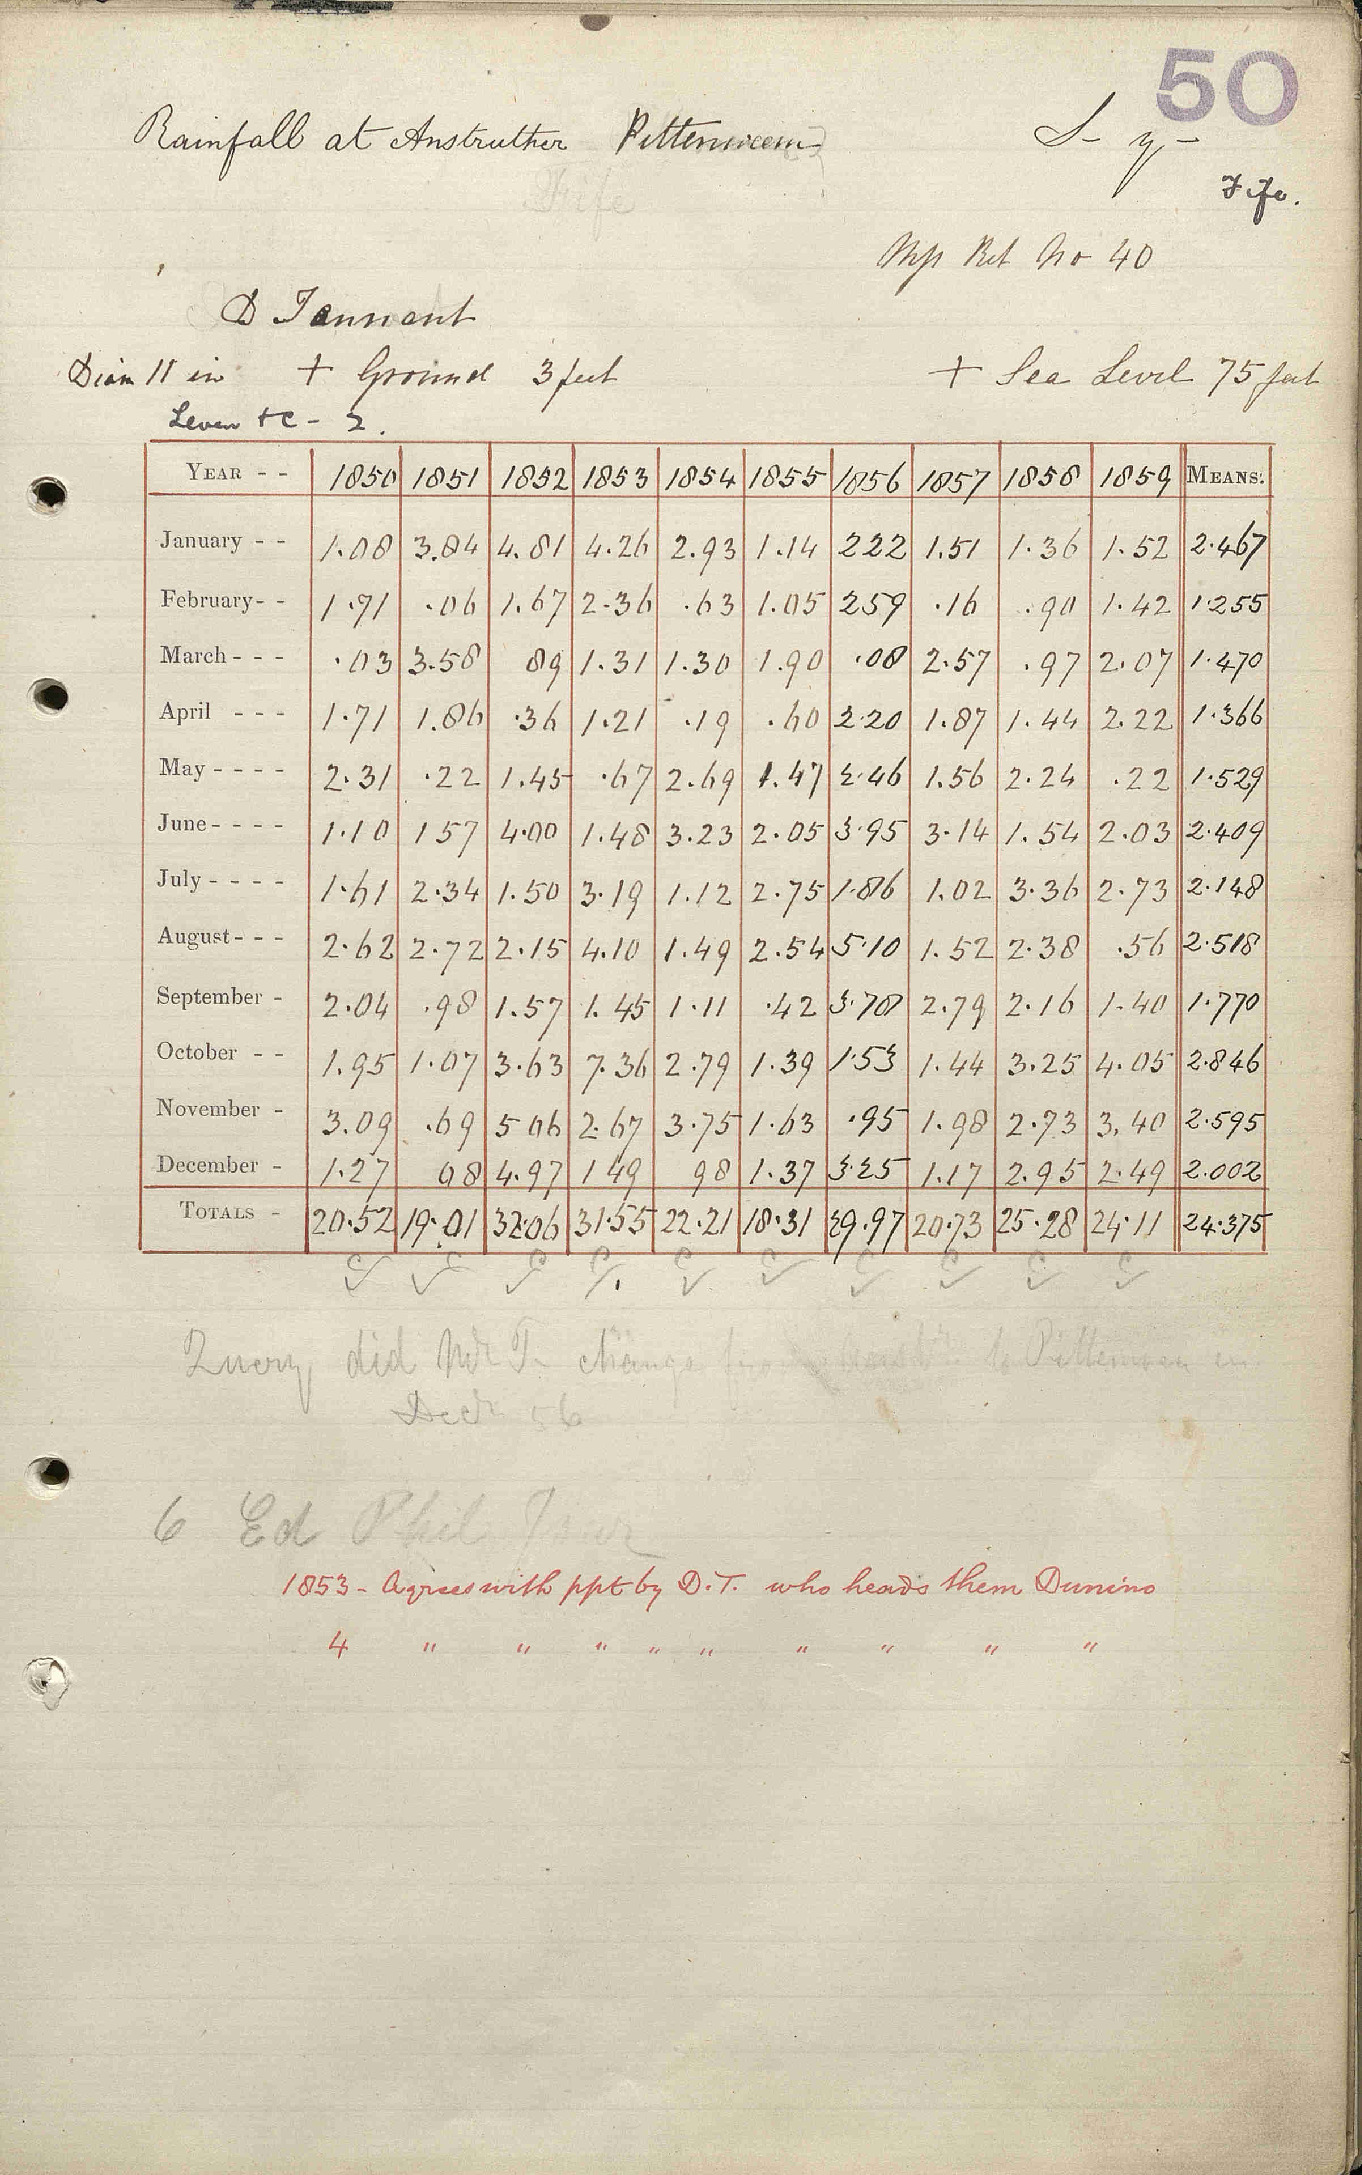 50
Rainfall at Anstruther Pittenweem
Fife
S - y -
Fife.
Mss Ret No 40
D Tennant
Diam 11 in + Ground 3 feet + Sea Level 75 feet
Leven &c - 2.
YEAR - - 1850 1851 1852 1853 1854 1855 1856 1857 1858 1859 MEANS.
January - - 1.08 3.84 4.81 4.26 2.93 1.14 222 1.51 1.36 1.52 2.467
February - - 1.71 .06 1.67 2.36 .63 1.05 259 .16 .90 1.42 1.255
March - - - .03 3.58 89 1.31 1.30 1.90 .08 2.57 .97 2.07 1.470
April - - - 1.71 1.86 .36 1.21 .19 .60 2.20 1.87 1.44 2.22 1.366
May - - - - 2.31 .22 1.45 .67 2.69 1.47 2.46 1.56 2.24 .22 1.529
June - - - - 1.10 157 4.00 1.48 3.23 2.05 3.95 3.14 1.54 2.03 2.409
July - - - - 1.61 2.34 1.50 3.19 1.12 2.75 1.86 1.02 3.36 2.73 2.148
August - - - 2.62 2.72 2.15 4.10 1.49 2.54 5.10 1.52 2.38 .56 2.518
September - 2.04 .98 1.57 1.45 1.11 .42 3.78 2.79 2.16 1.40 1.770
October - - 1.95 1.07 3.63 7.36 2.79 1.39 1.53 1.44 3.25 4.05 2.846
November - 3.09 .69 5 06 2.67 3.75 1.63 .95 1.98 2.73 3.40 2.595
December - 1.27 08 4.97 1 49 98 1.37 3.25 1.17 2.95 2.49 2.002
TOTALS - 20.52 19.01 32.06 31.55 22.21 18.31 29.97 20.73 25.28 24.11 24.375
Query did Mr T. change from to Pittenweem in
Decr 56
6 Ed Phil Jour
1853 - Agrees with ppt by D.T. who heads them Dunino
4 " " " " " " " " "